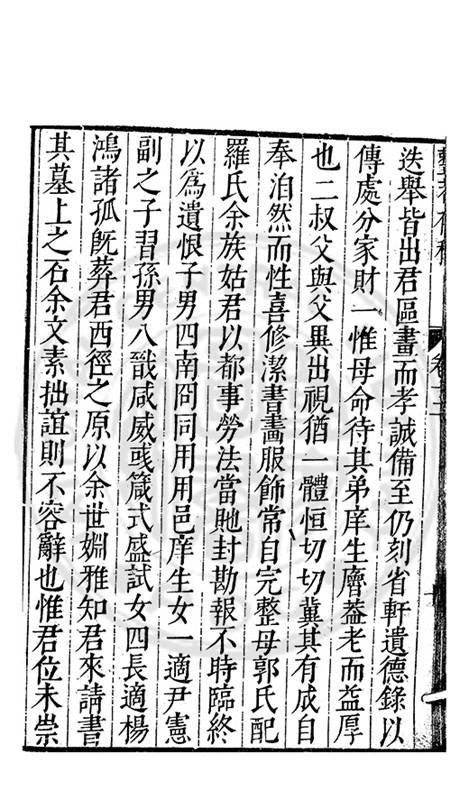 迭舉皆出君區畫而孝誠備至仍刻省軒遺德錄以
傳處分家財一惟母命待其弟庠生㕓葢老而益厚
也二叔父與父異出視猶一體恒切切冀其有成自
奉泊然而性喜修潔書畵服飾常自完整母郭氏配
羅氏余族姑君以都事勞法當貤封勘報不時臨終
以爲遺恨子男四南冏同用用邑庠生女一適尹憲
副之子習孫男八戩咸威彧箴式盛試女四長適楊
鴻諸孤旣葬君西徑之原以余世姻雅知君來請書
其墓上之石余文素拙誼則不容辭也惟君位未崇